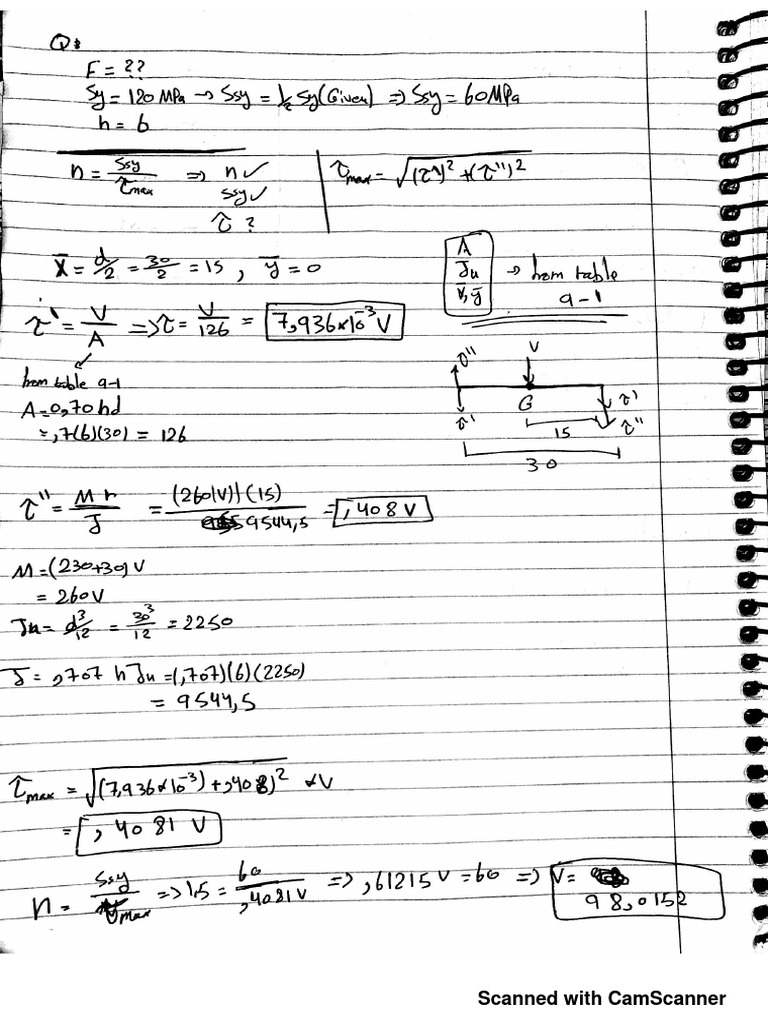 Q:
F = ??
Sy = 120 MPa → Ssy = 1/2 Sy (Given) ⇒ Ssy = 60 MPa
h = 6
n = Ssy/τmax ⇒ n ✓
ssy ✓
τ ?
τmax = √((τ')² + (τ'')²)
x̄ = d/2 = 30/2 = 15 , ȳ = 0
A
Ju → from table
x̄, ȳ 9-1
τ' = V/A ⇒ τ = V/126 = 7,936*10⁻³ V
from table 9-1
A = 0,70 hd
= ,7(6)(30) = 126
τ'' V
G τ'
τ' 15 τ''
30
τ'' = Mr/J = (260(V))(15)/9544,5 = ,408 V
M = (230+30) V
= 260 V
Ju = d³/12 = 30³/12 = 2250
J = ,707 h Ju = (,707)(6)(2250)
= 9544,5
τmax = √((7,936*10⁻³) + ,408)² *V
= ,4081 V
n = Ssy/τmax ⇒ 1,5 = 60/,4081V ⇒ ,61215 V = 60 ⇒ V =
98,0152
Scanned with CamScanner